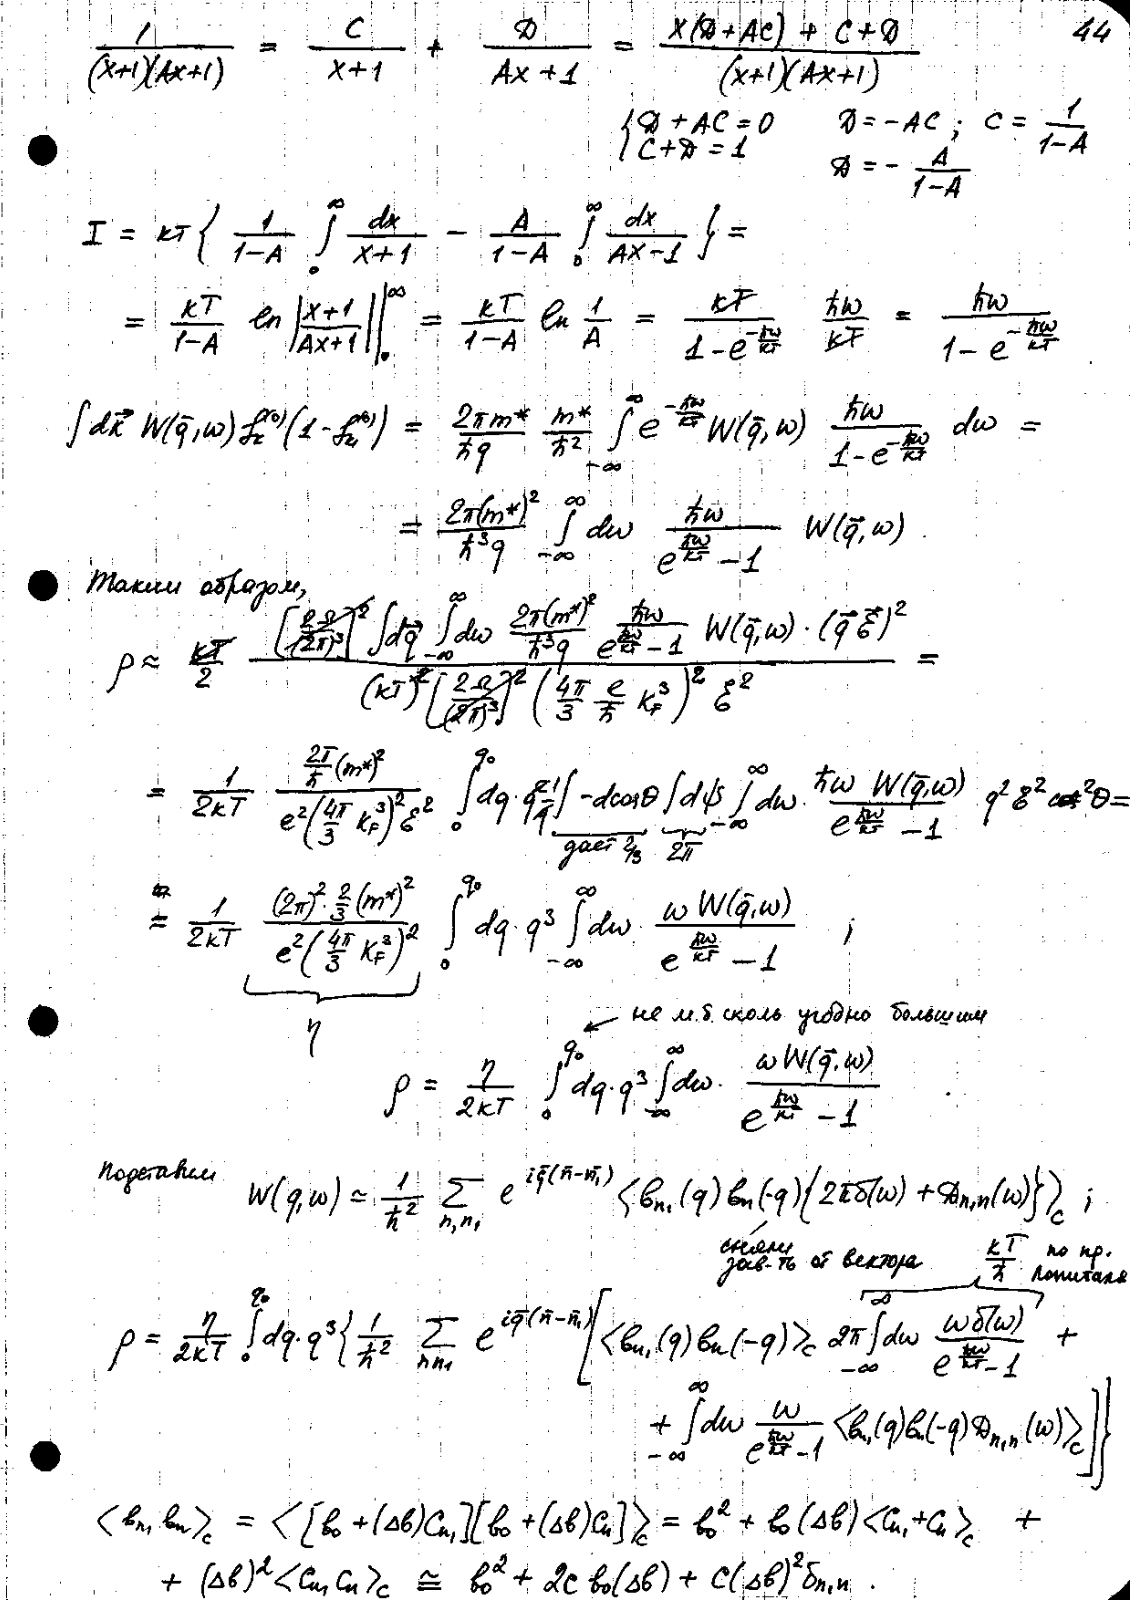 44
1/((x+1)(Ax+1)) = C/(x+1) + D/(Ax+1) = (x(D+AC) + C+D)/((x+1)(Ax+1))
{ D+AC=0   D=-AC ; C = 1/(1-A)
{ C+D=1   D = - A/(1-A)
I = кT { 1/(1-A) ∫₀^∞ dx/(x+1) - A/(1-A) ∫₀^∞ dx/(Ax-1) } =
= кT/(1-A) ln |(x+1)/(Ax+1)| |₀^∞ = кT/(1-A) ln 1/A = кT/(1-e^(-ħω/кT)) ħω/кT = ħω/(1-e^(-ħω/кT))
∫dk⃗ W(q⃗,ω) f_k^(0) (1-f_k₁^(0)) = 2πm*/(ħq) m*/ħ² ∫_{-∞}^∞ e^(-ħω/кT) W(q⃗,ω) ħω/(1-e^(-ħω/кT)) dω =
= 2π(m*)²/(ħ³q) ∫_{-∞}^∞ dω ħω/(e^(ħω/кT) - 1) W(q⃗,ω)
Таким образом,
ρ ≈ кT/2 [2Ω/(2π)³]² ∫dq⃗ ∫_{-∞}^∞ dω 2π(m*)²/(ħ³q) ħω/(e^(ħω/кT)-1) W(q⃗,ω)·(q⃗ ℰ⃗)² / ((кT)² [2Ω/(2π)³]² (4π/3 e/ħ k_F³)² ℰ²) =
= 1/(2кT) (2π/ħ (m*)²)/(e²(4π/3 k_F³)² ℰ²) ∫₀^{q₀} dq·q² 1/q ∫-dcosθ ∫dψ ∫_{-∞}^∞ dω· ħω W(q⃗,ω)/(e^(ħω/кT) - 1) q² ℰ² cos²θ =
даёт 2/3   2π
= 1/(2кT) ((2π)²·2/3 (m*)²)/(e²(4π/3 k_F³)²) ∫₀^{q₀} dq·q³ ∫_{-∞}^∞ dω· ω W(q⃗,ω)/(e^(ħω/кT) - 1) ;
η
не м.б. сколь угодно большим
ρ = η/(2кT) ∫₀^{q₀} dq·q³ ∫_{-∞}^∞ dω· ω W(q⃗,ω)/(e^(ħω/кT) - 1)
подставим W(q,ω) ≃ 1/ħ² Σ_{n,n₁} e^{iq̄(n̄-n̄₁)} <b_n₁(q) b_n(-q) {2πδ(ω) + D_n₁n(ω)}>_c ;
сняли
зав-ть от вектора   кT/ħ по пр.
Лопиталя
ρ = η/(2кT) ∫₀^{q₀} dq·q³ { 1/ħ² Σ_{nn₁} e^{iq̄(n̄-n̄₁)} [ <b_n₁(q) b_n(-q)>_c 2π ∫_{-∞}^∞ dω ωδ(ω)/(e^(ħω/кT)-1) +
+ ∫_{-∞}^∞ dω ω/(e^(ħω/кT)-1) <b_n₁(q) b_n(-q) D_n₁n(ω)>_c ] }
<b_n₁ b_n>_c = <[b₀+(Δb)C_n₁][b₀+(Δb)C_n]>_c = b₀² + b₀(Δb)<C_n₁+C_n>_c +
+ (Δb)²<C_n₁ C_n>_c ≅ b₀² + 2c b₀(Δb) + c(Δb)² δ_n₁n .